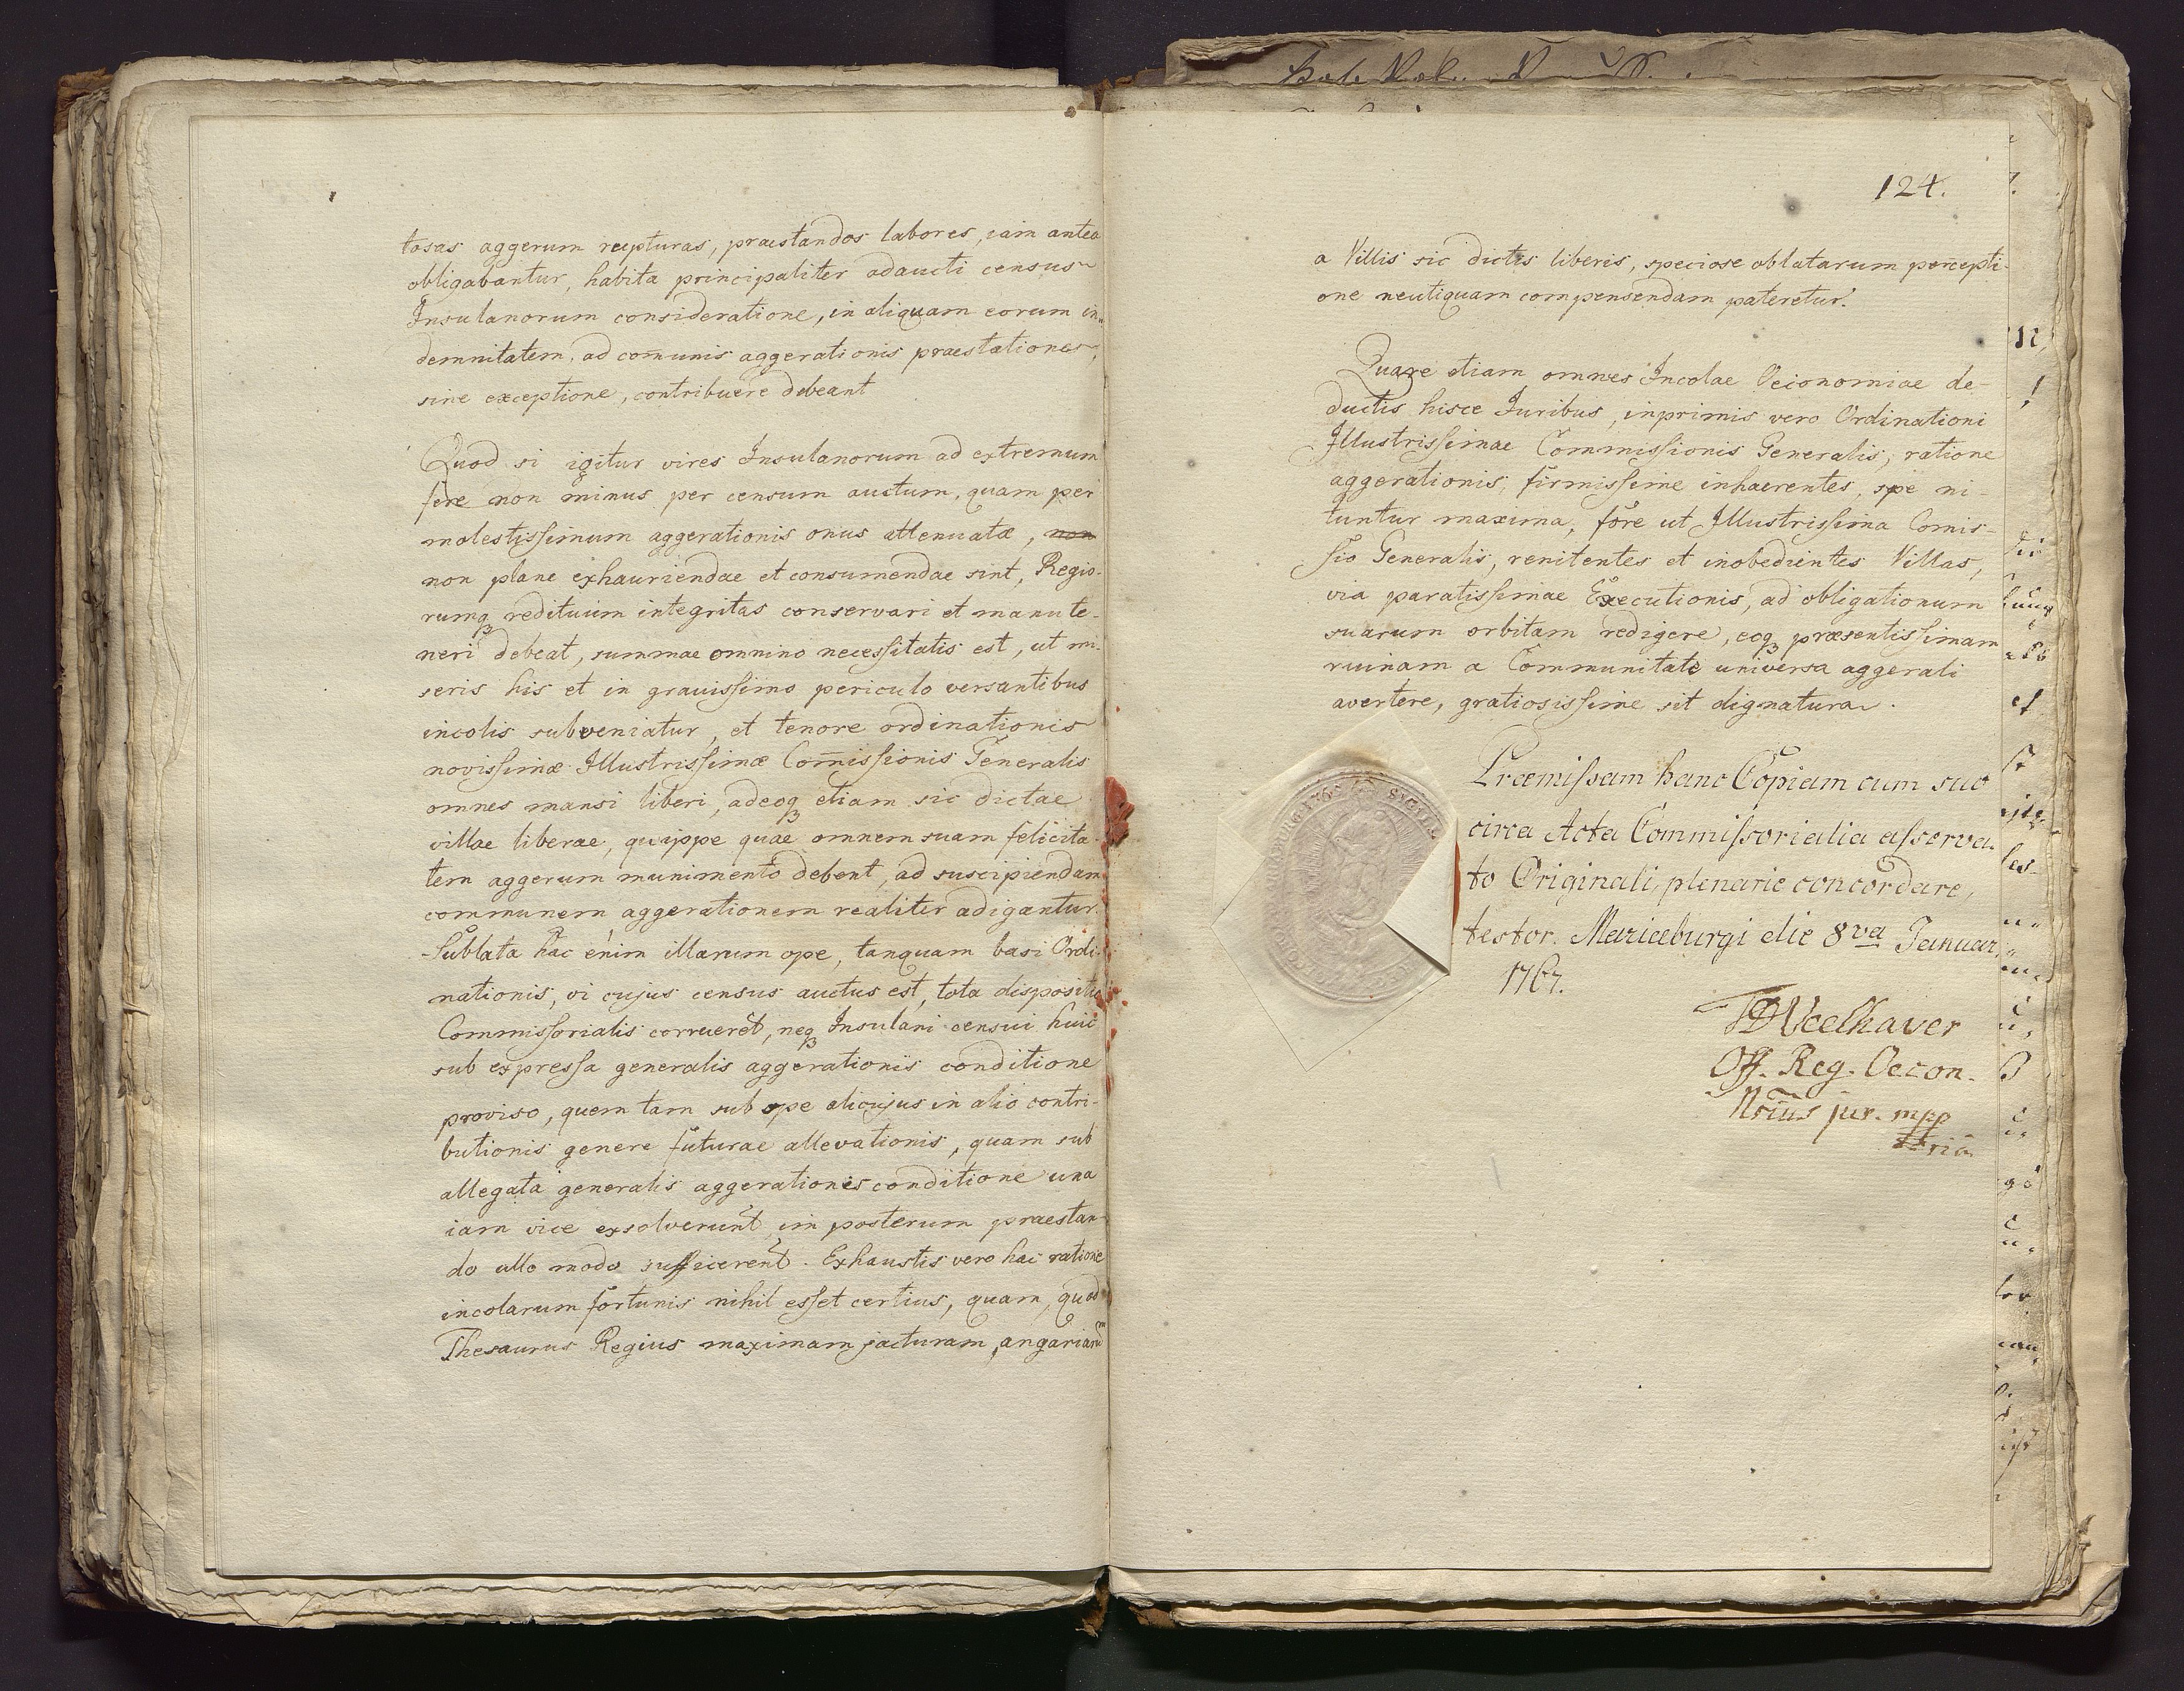 tosas aggerum rupturas, praestandos labores, iam antea
obligabantur, habita principaliter adaucti census
Insulanorum consideratione, in aliquam eorum in„
demnitatem, ad com̄unis aggerationis praestationes,
sine exceptione, contribuere debeant
Quod si igitur vires Insulanorum ad extremum
fere non minus per censum auctum, quam per
molestissimum aggerationis onus attenuatæ, non
non plane exhauriendae et consumendae sint, Regio-
rumq₃ redituum integritas conservari et manute-
neri debeat, summae omnino necessitatis est, ut mi-
seris his et in gravissimo periculo versantibus
incolis subveniatur, et tenore ordinationis
novissimæ Illustrissimæ Com̄issionis Generalis
omnes mansi liberi, adeoq₃ etiam sic dictae
villae liberae, quippe quae omnem suam felicita-
tem aggerum munimento debent, ad suscipiendam
communem aggerationem realiter adigantur.
Sublata hac enim illarum ope, tanquam basi Ordi-
nationis, vi cujus census auctus est, tota dispositio
Commissorialis corrueret, neq₃ Insulani censui huic
sub expressa generalis aggerationis conditione
proviso, quem tam sub spe alicujus in alio contri-
butionis genere futurae allevationis, quam sub
allegata generalis aggerationis conditione una
iam vice exsolverunt, in posterum praestan-
do ullo modo sufficerent. Exhaustis vero hac ratione
incolarum fortunis nihil esset certius, quam, quod
Thesaurus Regius maximam jacturam, angariarum
124.
a Villis sic dictis liberis, speciose oblatarum percepti-
one neutiquam compensendam pateretur.
Quare etiam omnes Incolae Oeconomiae de-
ductis hisce Juribus, inprimis vero Ordinationi
Illustrissimae Commissionis Generalis, ratione
aggerationis, firmissime inhaerentes, spe ni-
tuntur maxima, fore ut Illustrissima Comis-
sio Generalis, renitentes et inobedientes Villas,
via paratissimae Executionis, ad obligationum
suarum orbitam redigere, eoq₃ præsentissimam
ruinam a Communitate universa aggerali
avertere, gratiosissime sit dignatura.
Præmissam hanc Copiam cum suo
circa Acta Commissorialia asserva-
to Originali, plenarie concordare,
testor. Mariæburgi die 8va Januar.
1767.
Weelhaver
Off. Reg. Oecon.
Nrius jur. mpp